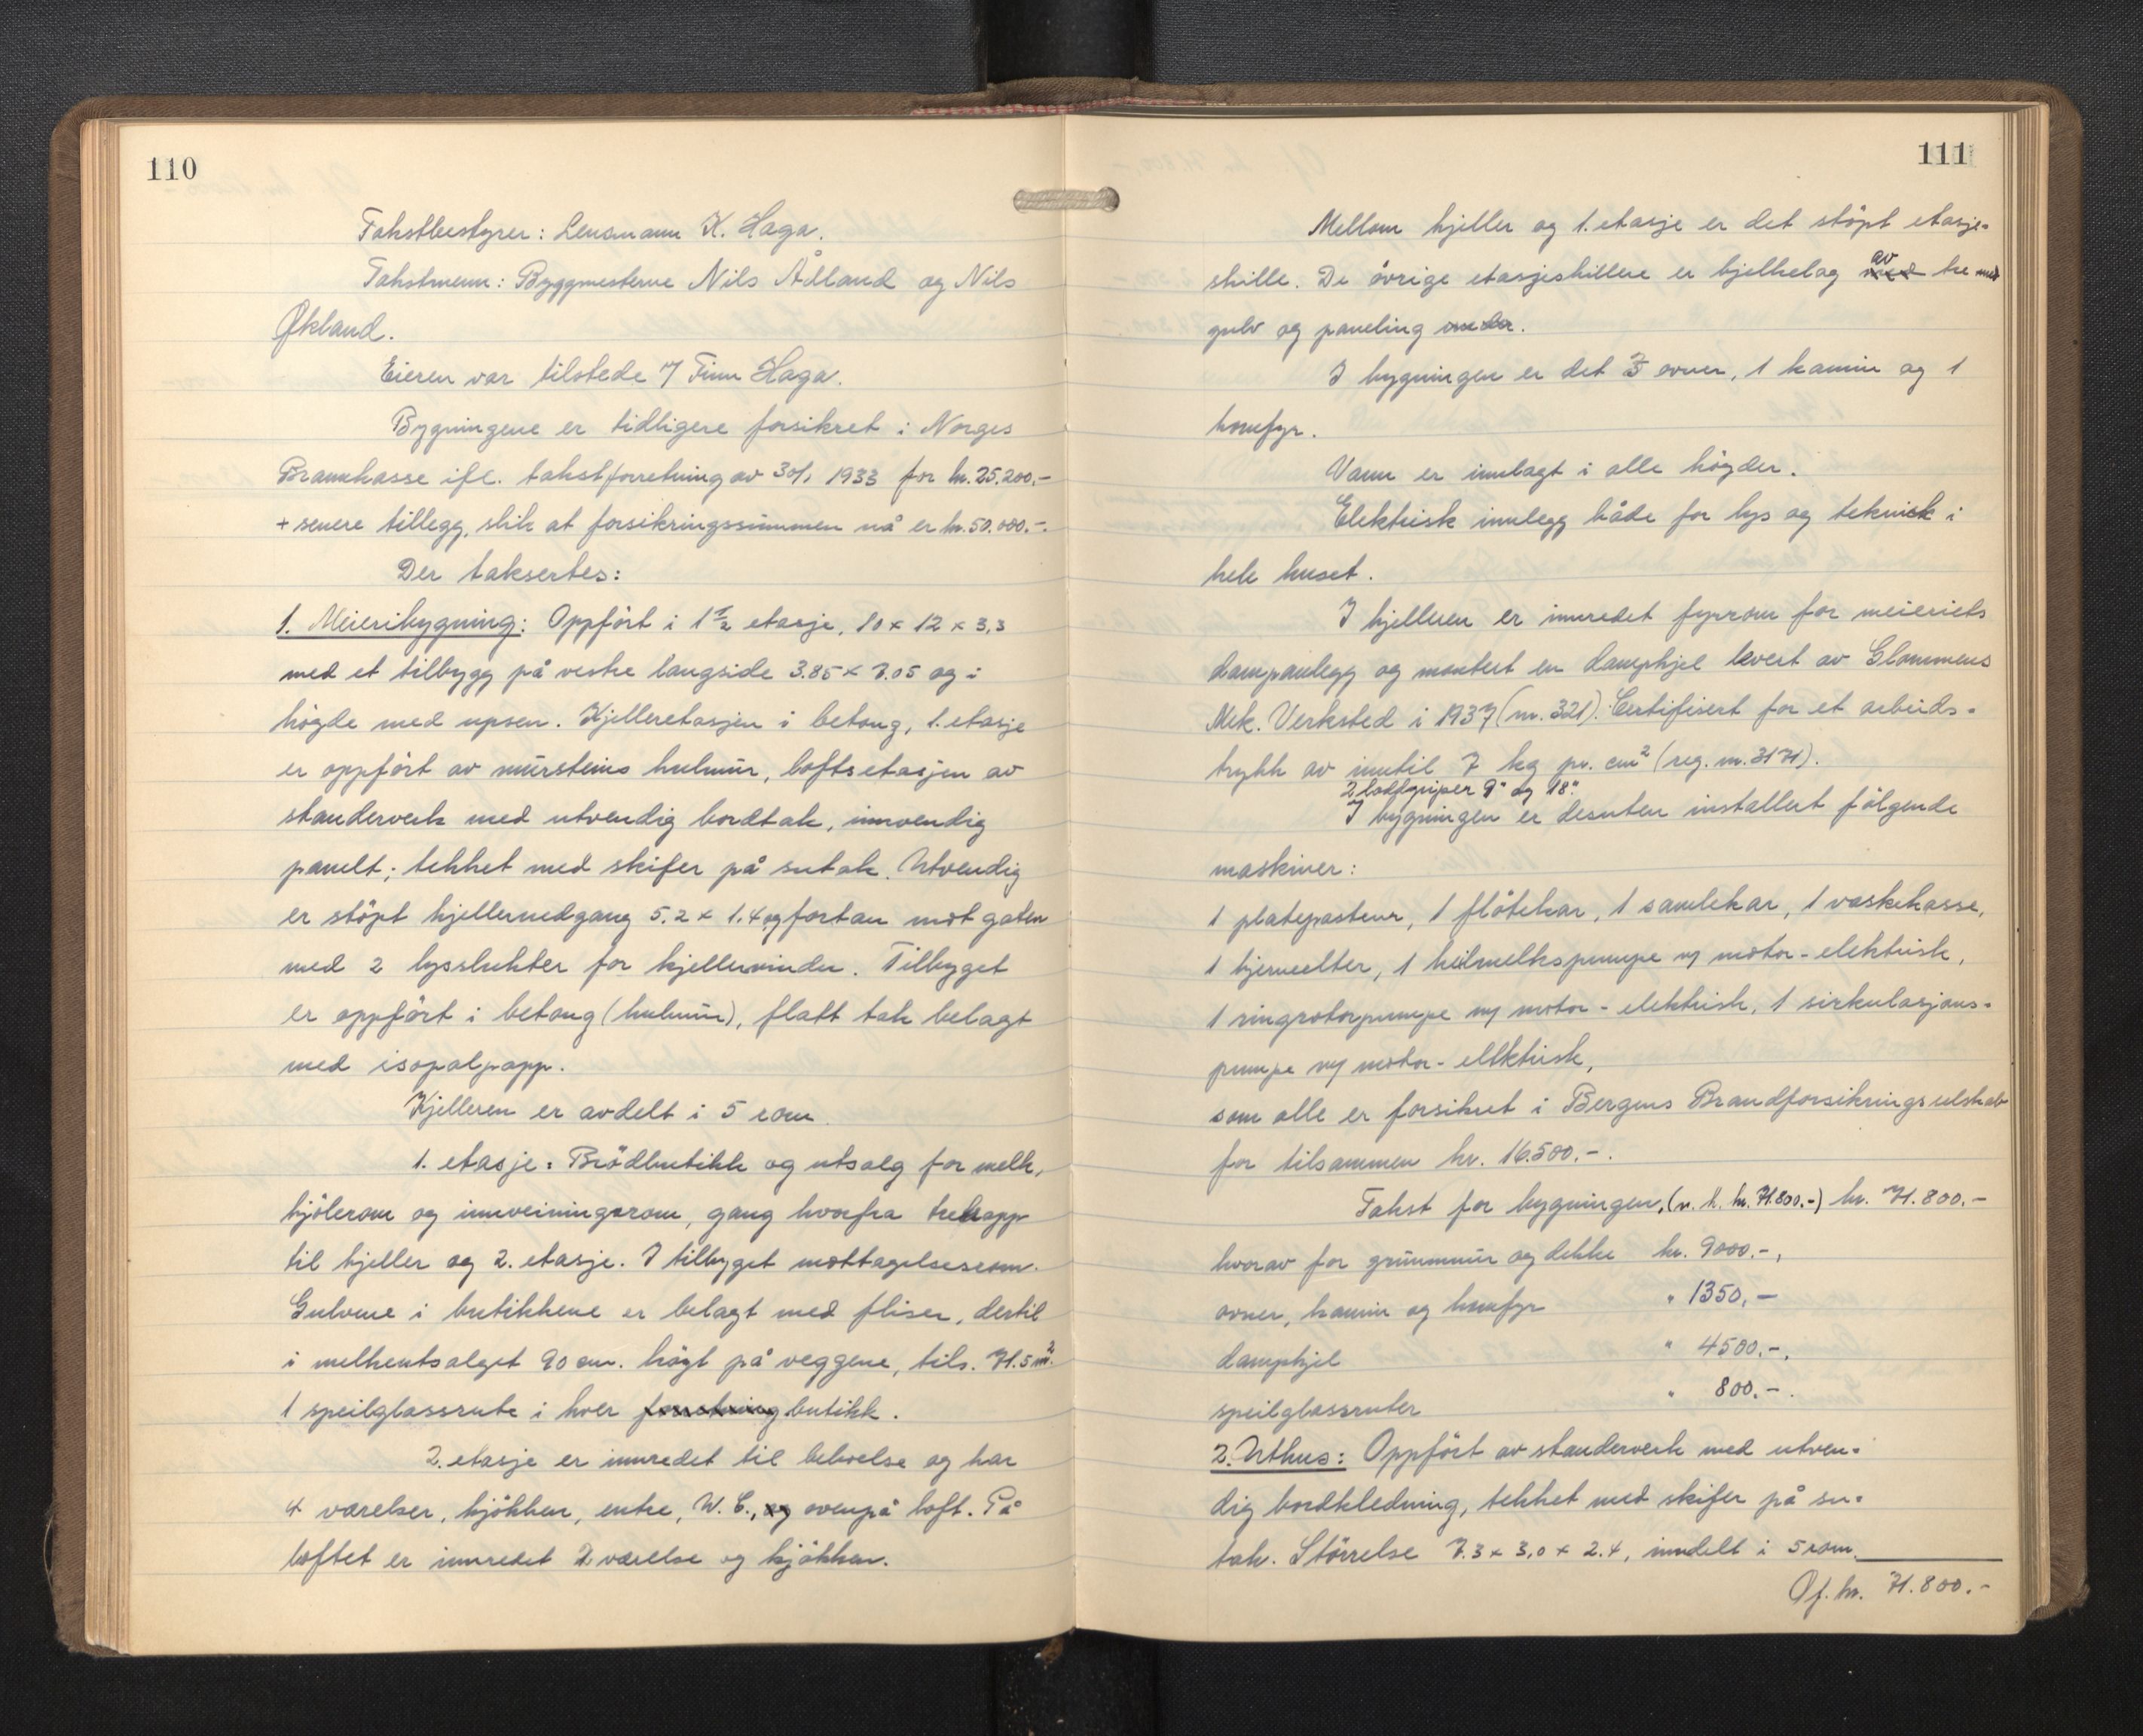 110
Takstbestyrer: Lensmann K. Haga.
Takstmenn: Byggmesterne Nils Ådland og Nils
Økland.
Eieren var tilstede v/ Finn Haga.
Bygningene er tidligere forsikret i Norges
Brannkasse ifl. takstforretning av 30/1 1933 for kr. 25.200.-
+ senere tillegg, slik at forsikringssummen nå er kr. 50.000.-.
Der taksertes:
1. Meieribygning: Oppfört i 1 1/2 etasje, 10 x 12 x 3,3
med et tilbygg på vestre langside 3.85 x 7.05 og i
högde med upsen. Kjelleretasjen i betong, 1. etasje
er oppfört av mursteins hulmur, loftsetasjen av
standerverk med utvendig bordtak, innvendig
panelt; tekket med skifer på sutak. Utvendig
er stöpt kjellernedgang 5.2 x 1.4 og fortau mot gaten
med 2 lyssluker for kjellervindu. Tilbygget
er oppfört i betong (hulmur), flatt tak belagt
med isopalpapp.
Kjelleren er avdelt i 5 rom.
1. etasje: Brödbutikk og utsalg for melk,
kjölerom og innveiningsrom, gang hvorfra trekapp
til kjeller og 2. etasje. I tilbygget mottagelsesrom.
Gulvene i butikkene er belagt med fliser, dertil
i melkeutsalget 90 cm. högt på veggene, tils. 71.5 m².
1 speilglassrute i hver forretning butikk.
2. etasje er innredet til beboelse og har
4 værelser, kjökken, entre, W.C., og ovenpå loft. På
loftet er innredet 2 værelse og kjökken.
111
Mellom kjeller og 1. etasje er det stöpt etasje-
skille. De övrige etasjeskillere er bjelkelag med av tre med
gulv og paneling under.
I bygningen er det 3 ovner, 1 kamin og 1
komfyr.
Vann er innlagt i alle högder.
Elektrisk innlegg både for lys og teknisk i
hele huset.
I kjelleren er innredet fyrrom for meieriets
dampanlegg og montert en dampkjel levert av Glommens
Mek. Verksted i 1937 (nr. 321). Certifisert for et arbeids-
trykk av inntil 7 kg pr. cm² (reg. nr. 3171).
2 lodfyrpiper 9" og 18".
I bygningen er desuten installert fölgende
maskiner:
1 platepasteur, 1 flötekar, 1 samlekar, 1 vaskekasse,
1 kjerneelter, 1 helmelkspumpe m/ motor - elektrisk,
1 ringrotorpumpe m/ motor - elektrisk, 1 sirkulasjons-
pumpe m/ motor - elektrisk,
som alle er forsikret i Bergens Brandforsikringsselskab
for tilsammen kr. 16.500.-.
Takst for bygningen, (n. k. kr. 71.800.-) kr. 71.800.-
hvorav for grunnmur og dekke kr. 9000.-,
ovner, kamin og komfyr " 1350,-
dampkjel " 4500.-,
speilglassruter " 800.-.
2. Uthus: Oppfört av standerverk med utven-
dig bordkledning, tekket med skifer på su-
tak. Störrelse 7.3 x 3,0 x 2.4, inndelt i 5 rom.
Of. kr. 71.800.-